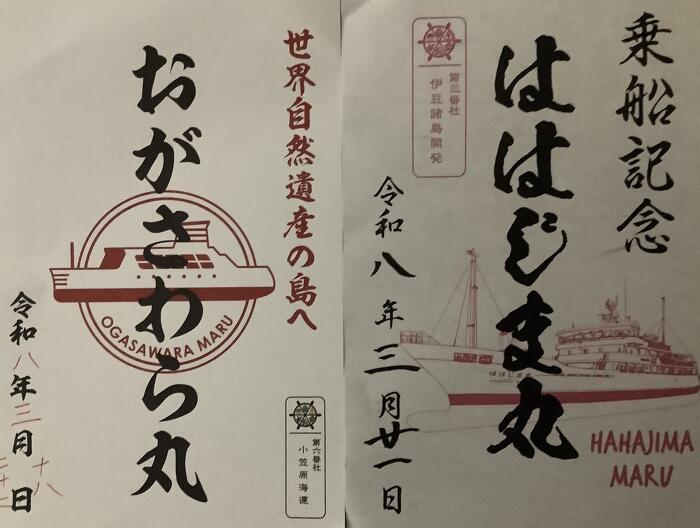 世界自然遺産の島へ
おがさわら丸
OGASAWARA MARU
令和八年三月
十八
日
第六番社
小笠原海運
乗船記念
ははじま丸
第三番社
伊豆諸島開発
令和八年三月廿一日
HAHAJIMA
MARU